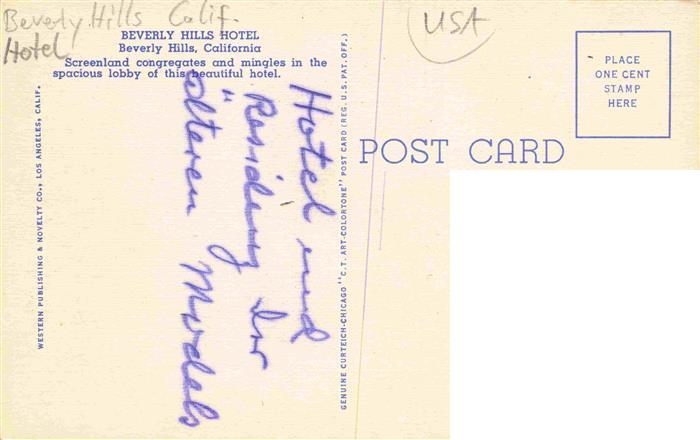 Beverly Hills Calif.
Hotel
USA
BEVERLY HILLS HOTEL
Beverly Hills, California
Screenland congregates and mingles in the
spacious lobby of this beautiful hotel.
PLACE
ONE CENT
STAMP
HERE
POST CARD
WESTERN PUBLISHING & NOVELTY CO., LOS ANGELES, CALIF.
Hotel und
älteren
GENUINE CURTEICH-CHICAGO "C.T. ART-COLORTONE" POST CARD (REG. U.S. PAT. OFF.)